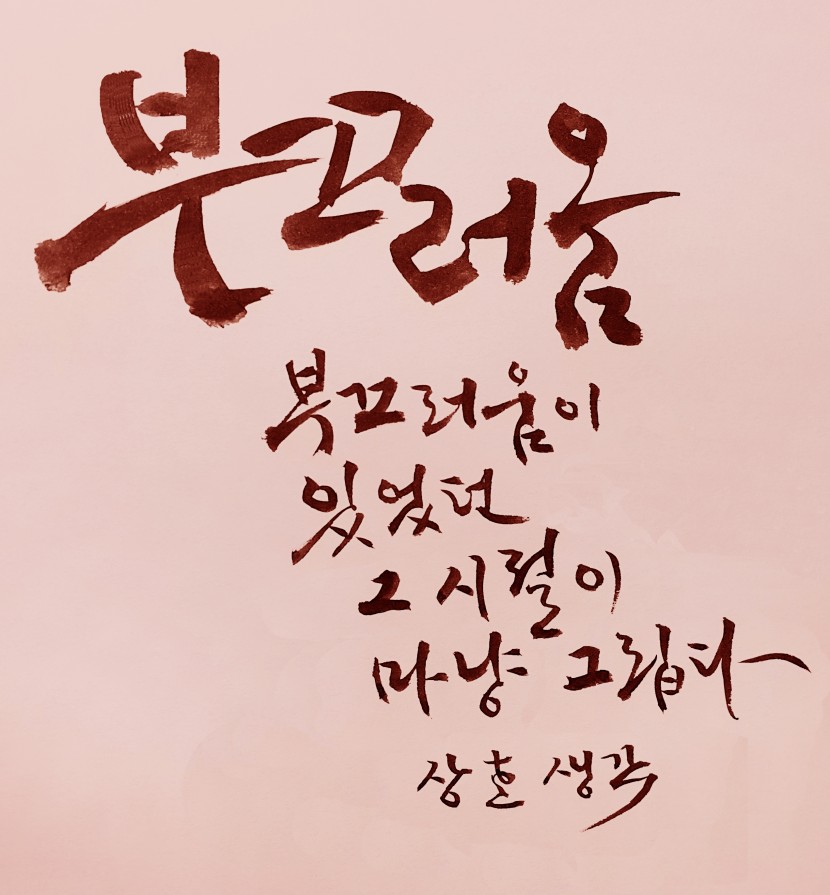 부끄러움
부끄러움이
있었던
그 시절이
마냥 그립다
상호 생각